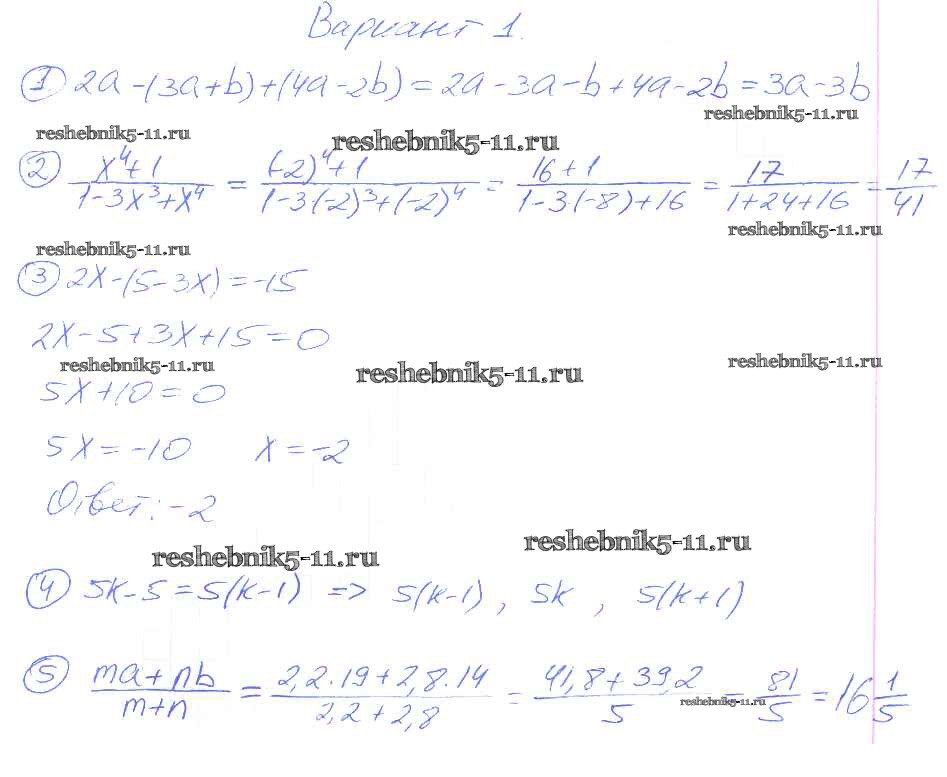 Вариант 1.
① 2a-(3a+b)+(4a-2b)=2a-3a-b+4a-2b=3a-3b
reshebnik5-11.ru reshebnik5-11.ru reshebnik5-11.ru
② (x⁴+1)/(1-3x³+x⁴) = ((-2)⁴+1)/(1-3·(-2)³+(-2)⁴) = (16+1)/(1-3·(-8)+16) = 17/(1+24+16) = 17/41
reshebnik5-11.ru reshebnik5-11.ru
③ 2x-(5-3x)=-15
2x-5+3x+15=0
reshebnik5-11.ru reshebnik5-11.ru reshebnik5-11.ru
5x+10=0
5x=-10 x=-2
Ответ: -2
reshebnik5-11.ru reshebnik5-11.ru
④ 5k-5=5(k-1) => 5(k-1), 5k, 5(k+1)
⑤ (ma+nb)/(m+n) = (2,2·19+2,8·14)/(2,2+2,8) = (41,8+39,2)/5 = 81/5 = 16 1/5
reshebnik5-11.ru